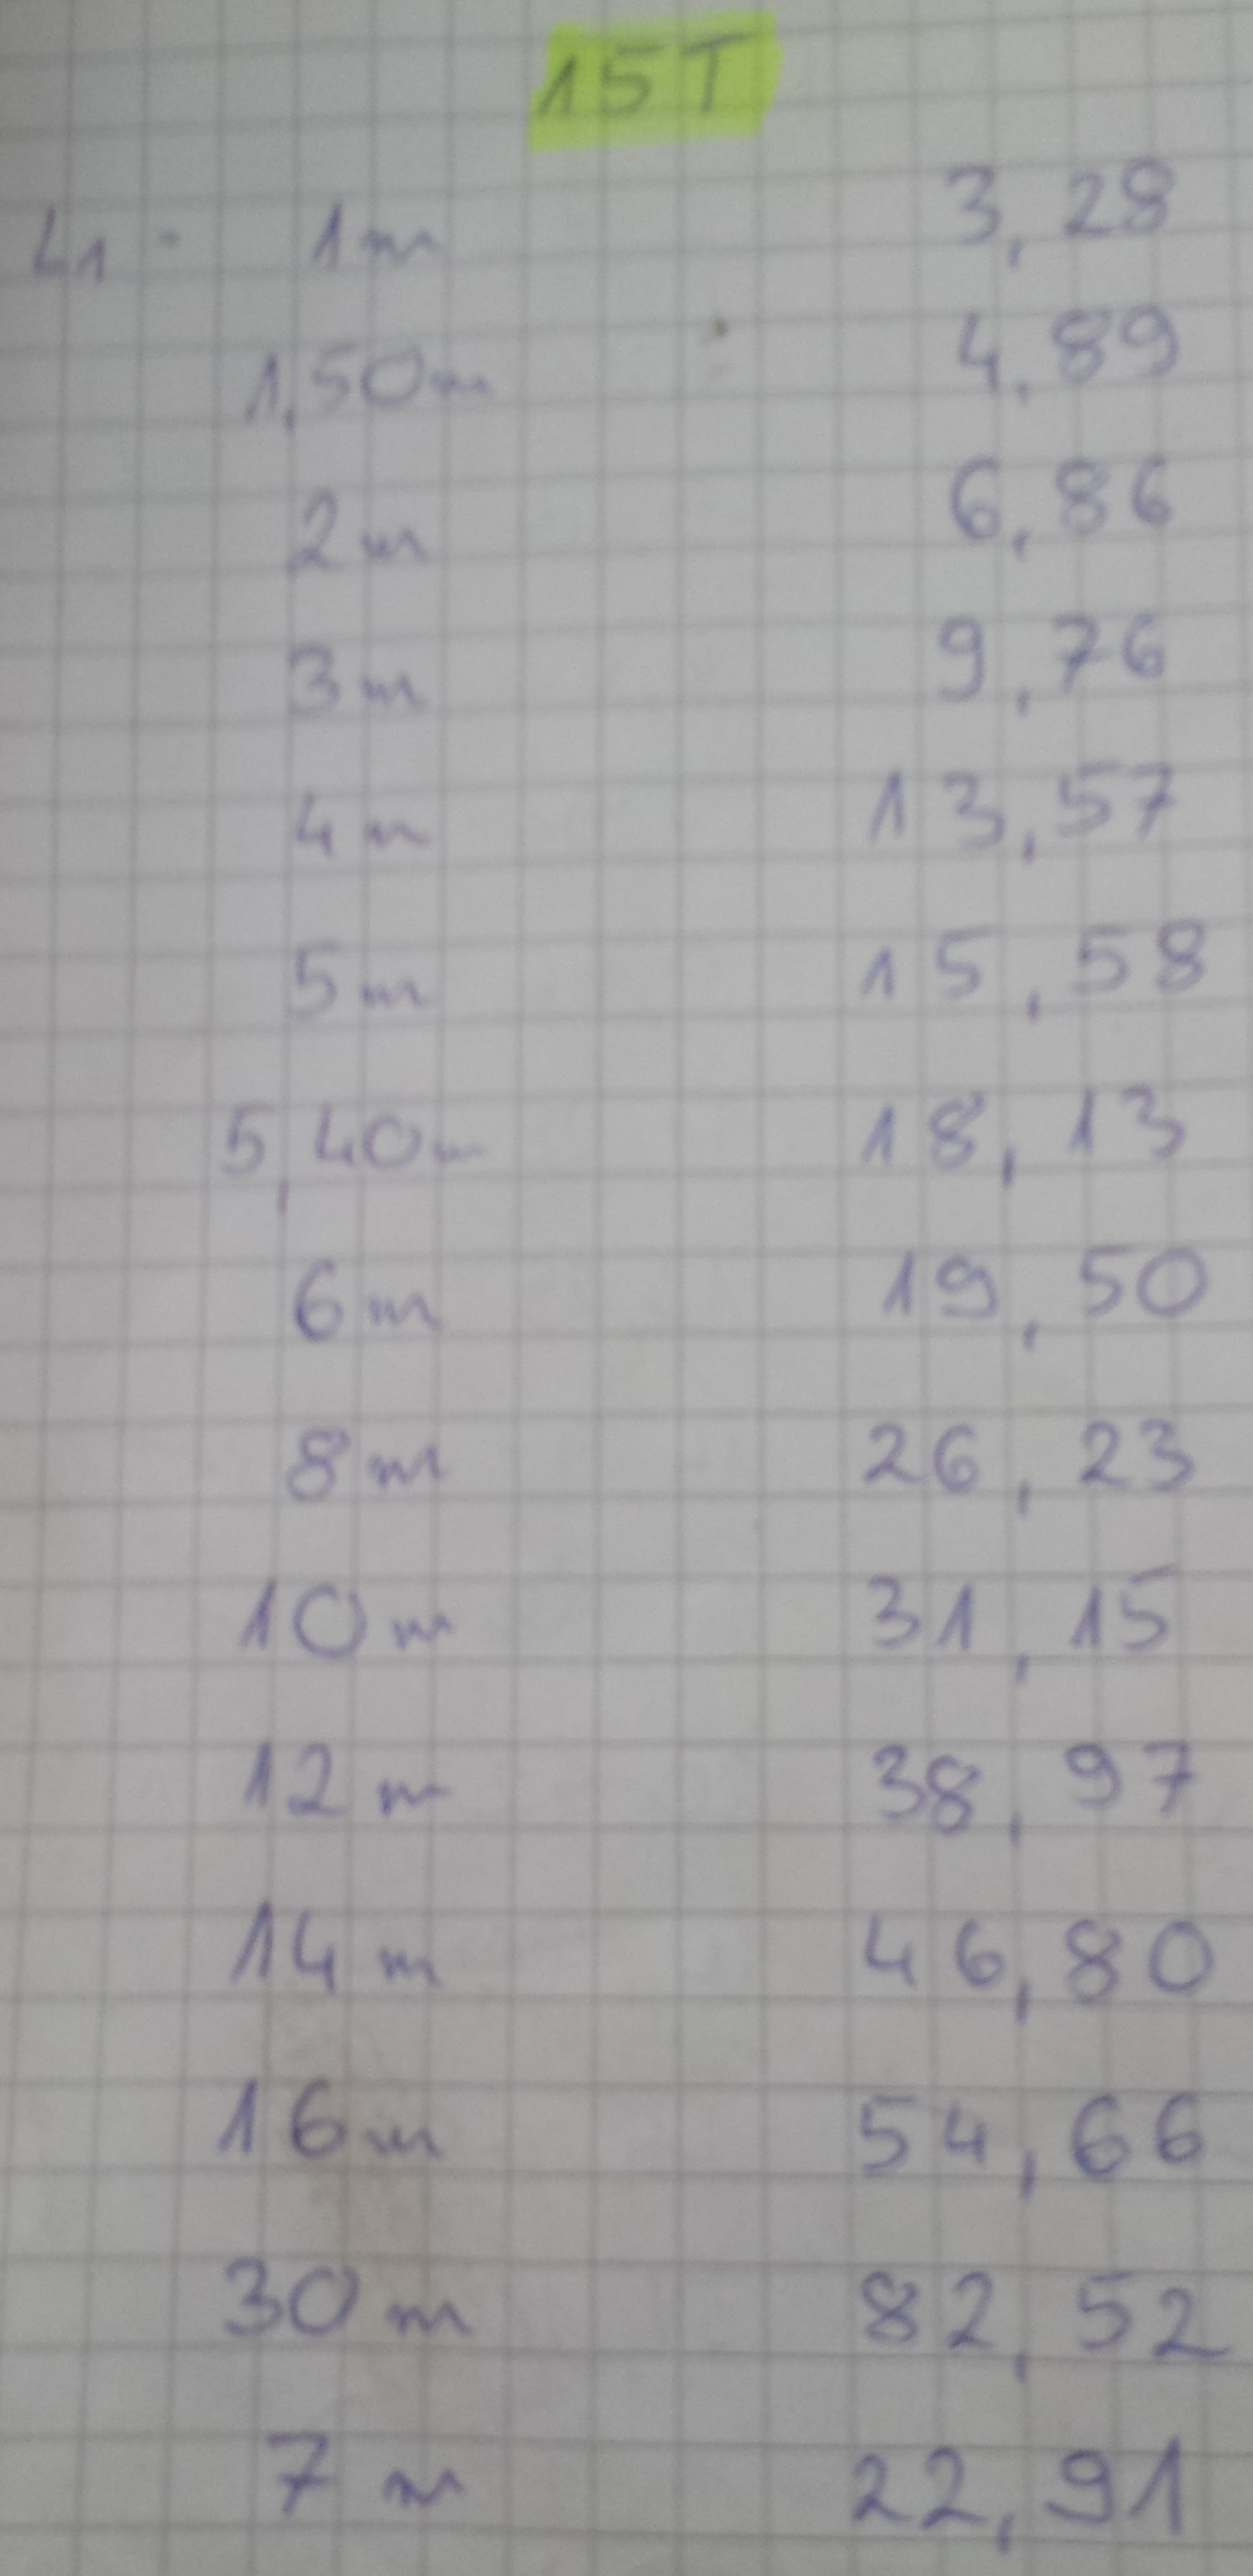 15T
L1 - 1m 3,28
1,50m 4,89
2m 6,86
3m 9,76
4m 13,57
5m 15,58
5,40m 18,13
6m 19,50
8m 26,23
10m 31,15
12m 38,97
14m 46,80
16m 54,66
30m 82,52
7m 22,91